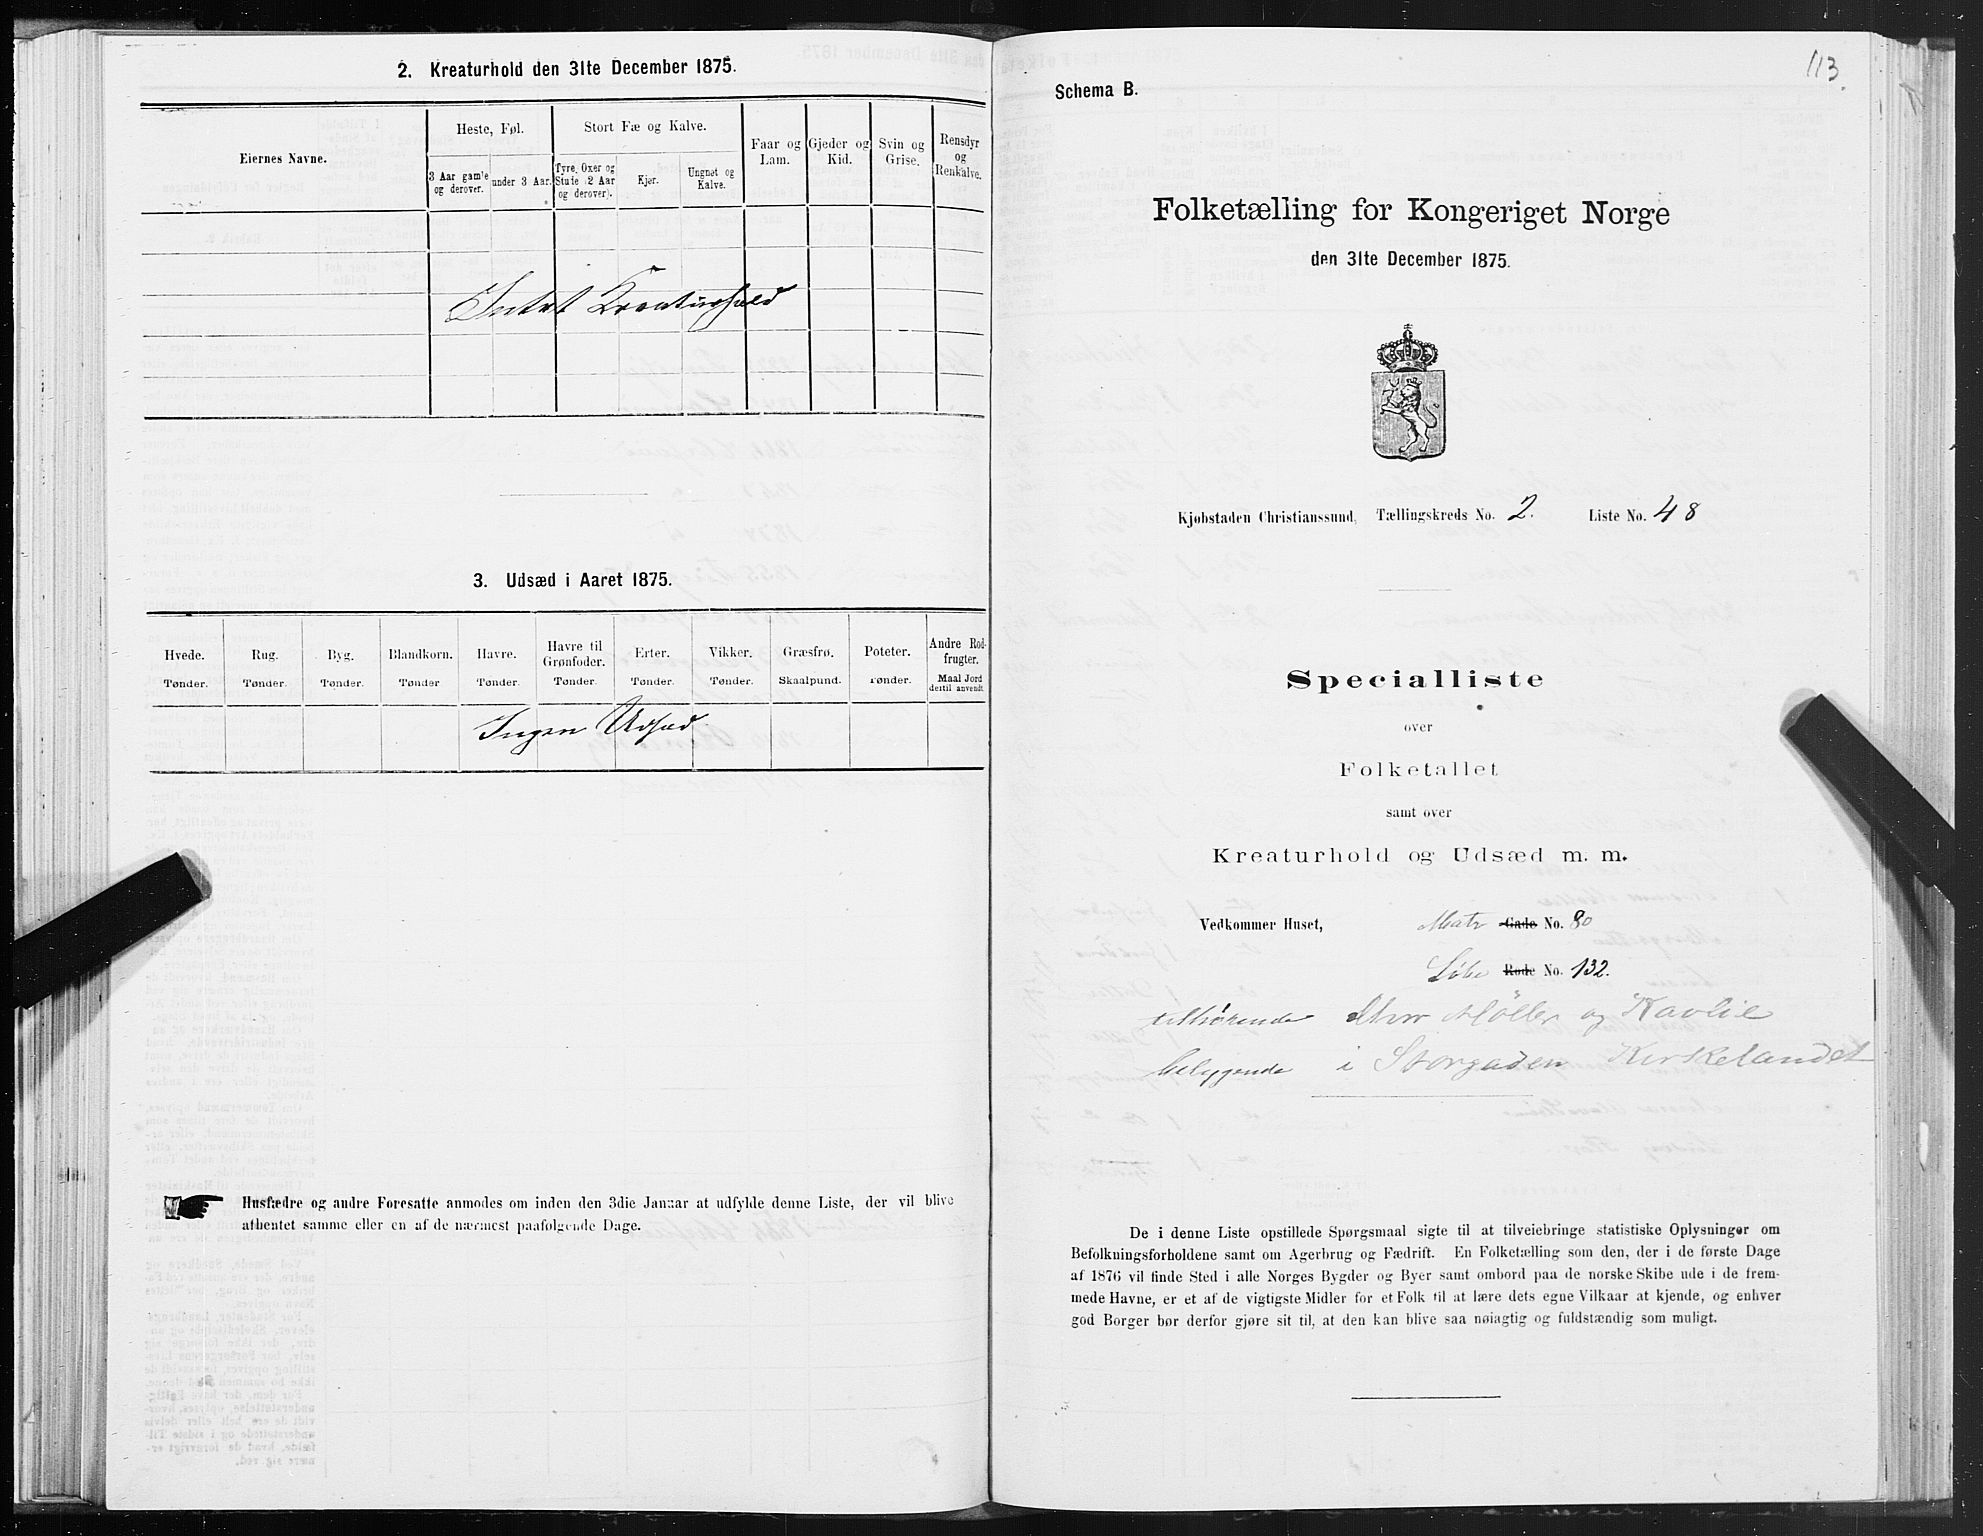 2. Kreaturhold den 31te December 1875.
Eiernes Navne.
Heste, Føl.
Stort Fæ og Kalve.
Faar og Lam.
Gjeder og Kid.
Svin og Grise.
Rensdyr og Renkalve.
3 Aar gamle og derover.
under 3 Aar.
Tyre, Oxer og Stude (2 Aar og derover).
Kjør.
Ungnet og Kalve.
Intet Kreaturhold
3. Udsæd i Aaret 1875.
Hvede. Rug. Byg. Blandkorn. Havre. Havre til Grønfoder. Erter. Vikker. Græsfrø. Poteter. Andre Rodfrugter.
Tønder. Tønder. Tønder. Tønder. Tønder. Tønder. Tønder. Tønder. Skaalpund. Tønder. Maal Jord dertil anvendt.
Ingen Udsæd
Husfædre og andre Foresatte anmodes om inden den 3die Januar at udfylde denne Liste, der vil blive
afhentet samme eller en af de nærmest paafølgende Dage.
113
Schema B.
Folketælling for Kongeriget Norge
den 31te December 1875.
Kjøbstaden Christianssund, Tællingskreds No. 2. Liste No. 48
Specialliste
over
Folketallet
samt over
Kreaturhold og Udsæd m. m.
Vedkommer Huset, Matr Gade No. 80
Løbe Rode No. 132.
tilhørende Møller og Kavlie
i Storgaden Kirkelandet
De i denne Liste opstillede Spørgsmaal sigte til at tilveiebringe statistiske Oplysninger om
Befolkningsforholdene samt om Agerbrug og Fædrift. En Folketælling som den, der i de første Dage
af 1876 vil finde Sted i alle Norges Bygder og Byer samt ombord paa de norske Skibe ude i de frem-
mede Havne, er et af de vigtigste Midler for et Folk til at lære dets egne Vilkaar at kjende, og enhver
god Borger bør derfor gjøre sit til, at den kan blive saa nøiagtig og fuldstændig som muligt.